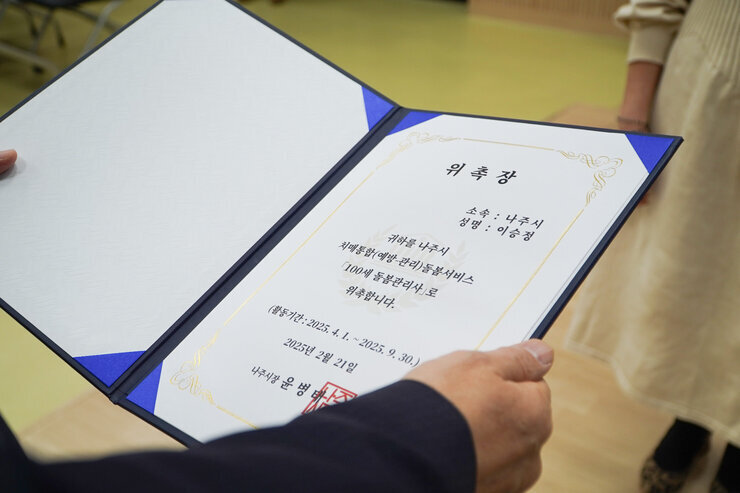 위 촉 장
소속 : 나주시
성명 : 이승정
귀하를 나주시
치매통합(예방·관리)돌봄서비스
「100세 돌봄관리사」로
위촉합니다.
(활동기간 : 2025. 4. 1. ~ 2025. 9. 30.)
2025년 2월 21일
나주시장 윤병태